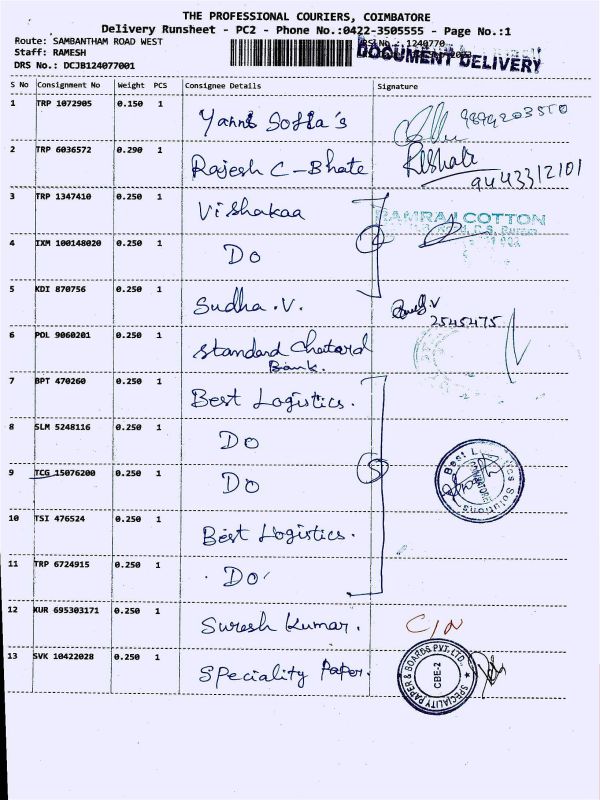 THE PROFESSIONAL COURIERS, COIMBATORE
Delivery Runsheet - PC2 - Phone No.:0422-3505555 - Page No.:1
Route: SAMBANTHAM ROAD WEST
Staff: RAMESH
DRS No.: DCJB124077001
DOCUMENT DELIVERY
S No Consignment No Weight PCS Consignee Details Signature
1 TRP 1072905 0.150 1 Yanni Sofia's
2 TRP 6036572 0.290 1 Rajesh C - Bhate
9443312101
3 TRP 1347410 0.250 1 Vishakaa
RAMRAJ COTTON
4 IXM 100148020 0.250 1 Do
5 KDI 870756 0.250 1 Sudha .V.
2545475
6 POL 9060201 0.250 1 Standard Chatard
Bank.
7 BPT 470260 0.250 1 Best Logistics.
8 SLM 5248116 0.250 1 Do
9 TCG 15076200 0.250 1 Do
5
10 TSI 476524 0.250 1 Best Logistics.
11 TRP 6724915 0.250 1 Do
12 KUR 695303171 0.250 1 Suresh Kumar.
13 SVK 10422028 0.250 1 Speciality Paper.
SPECIALITY PAPER & BOARDS PVT. LTD.
CBE-2